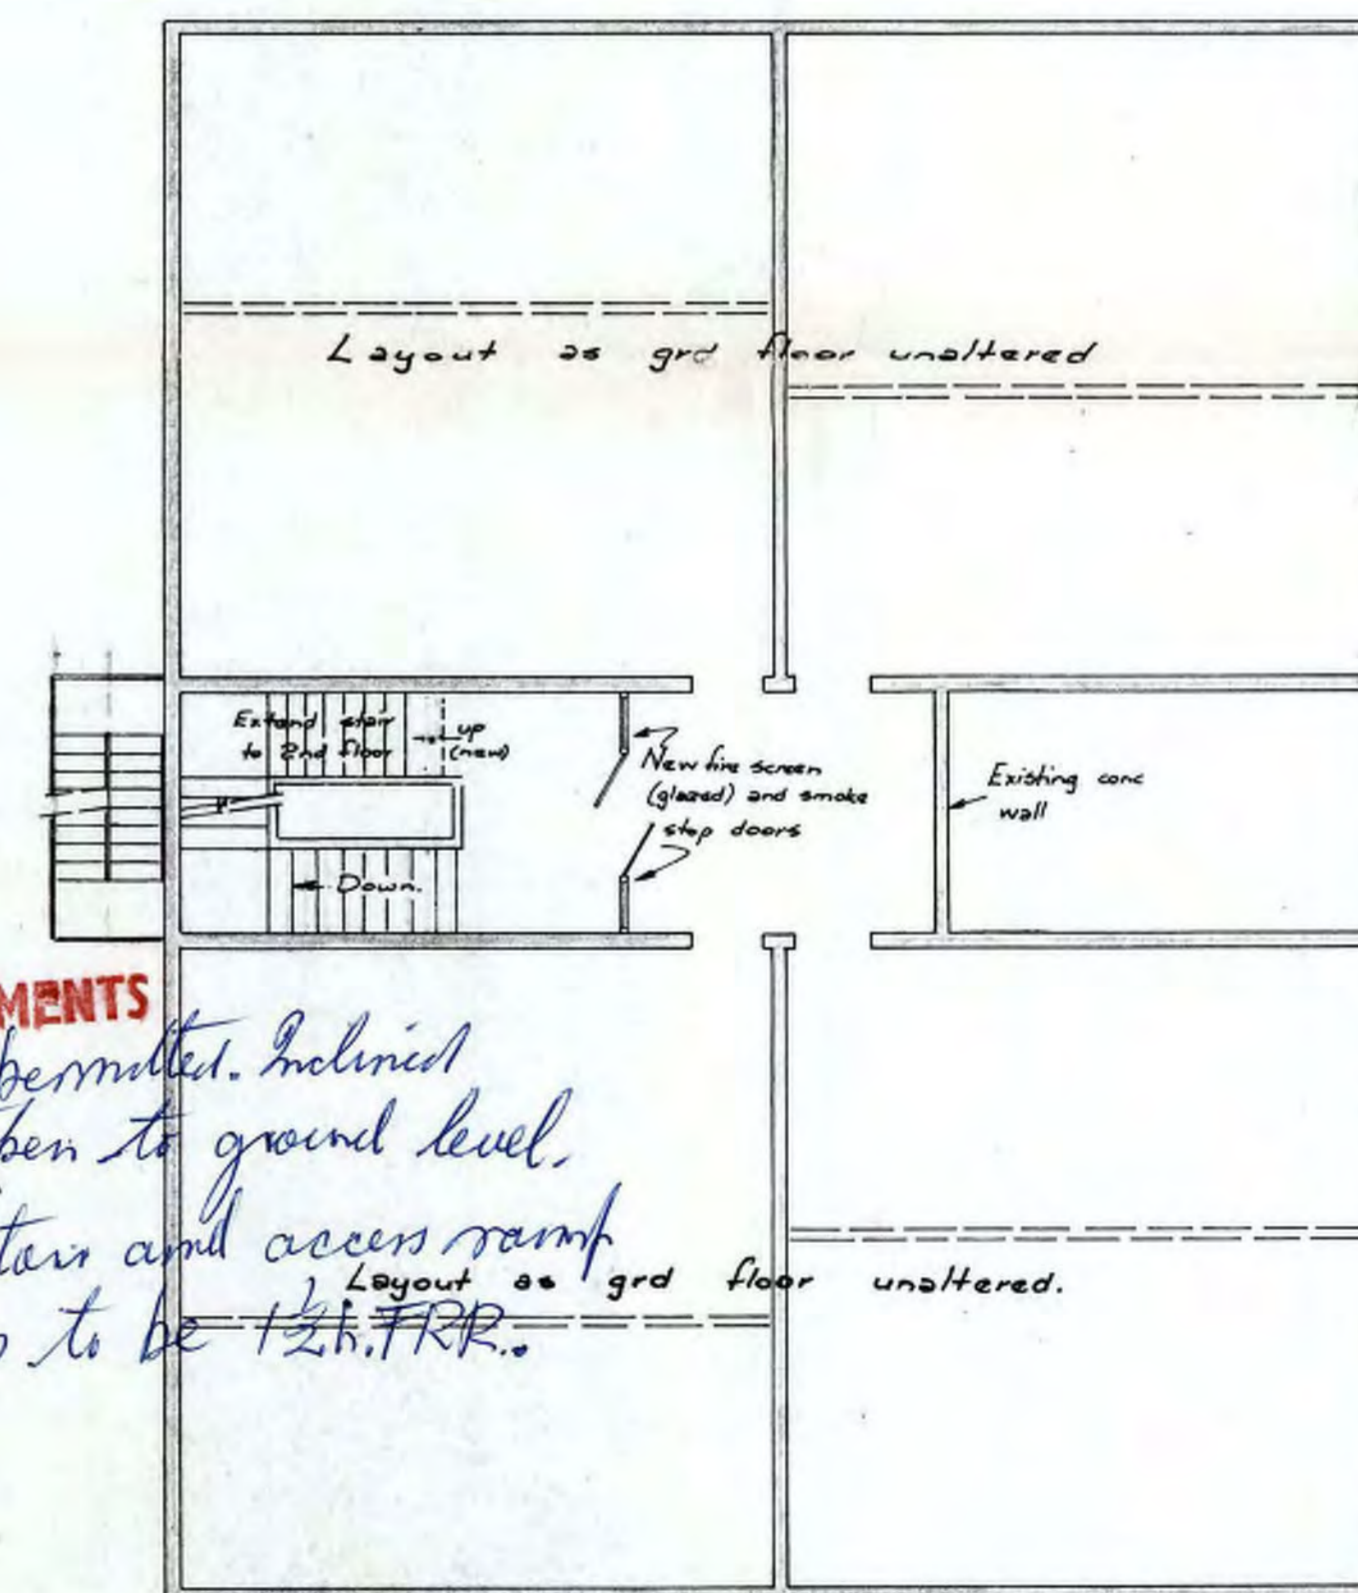 Layout as grd floor unaltered
Extend stair
to 2nd floor
up
(new)
New fire screen
(glazed) and smoke
stop doors
Existing conc
wall
Down.
MENTS
permitted. Inclined
to ground level.
and access ramp
Layout as grd floor unaltered.
to be 1½h. FRR..